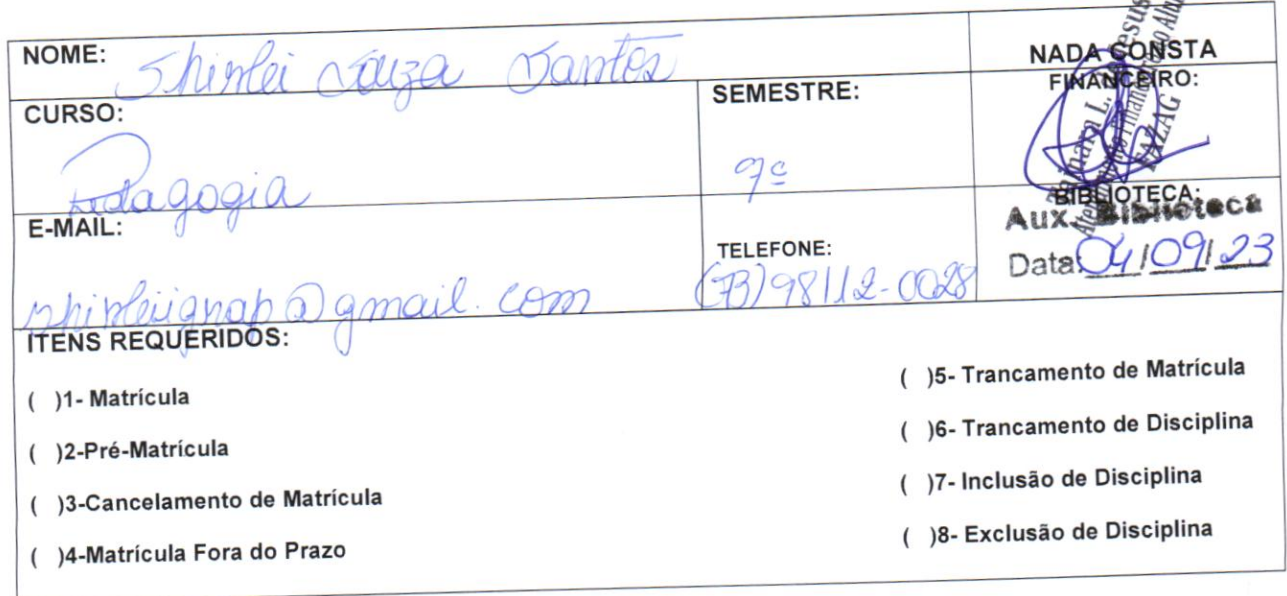 NOME: Shirlei Souza Santos
NADA CONSTA
FINANCEIRO:
CURSO:
Pedagogia
SEMESTRE:
9º
FAZAG
E-MAIL:
@gmail.com
TELEFONE:
(73)98112-0028
BIBLIOTECA:
Aux. Biblioteca
Data: 04/09/23
ITENS REQUERIDOS:
( )1- Matrícula
( )2-Pré-Matrícula
( )3-Cancelamento de Matrícula
( )4-Matrícula Fora do Prazo
( )5- Trancamento de Matrícula
( )6- Trancamento de Disciplina
( )7- Inclusão de Disciplina
( )8- Exclusão de Disciplina